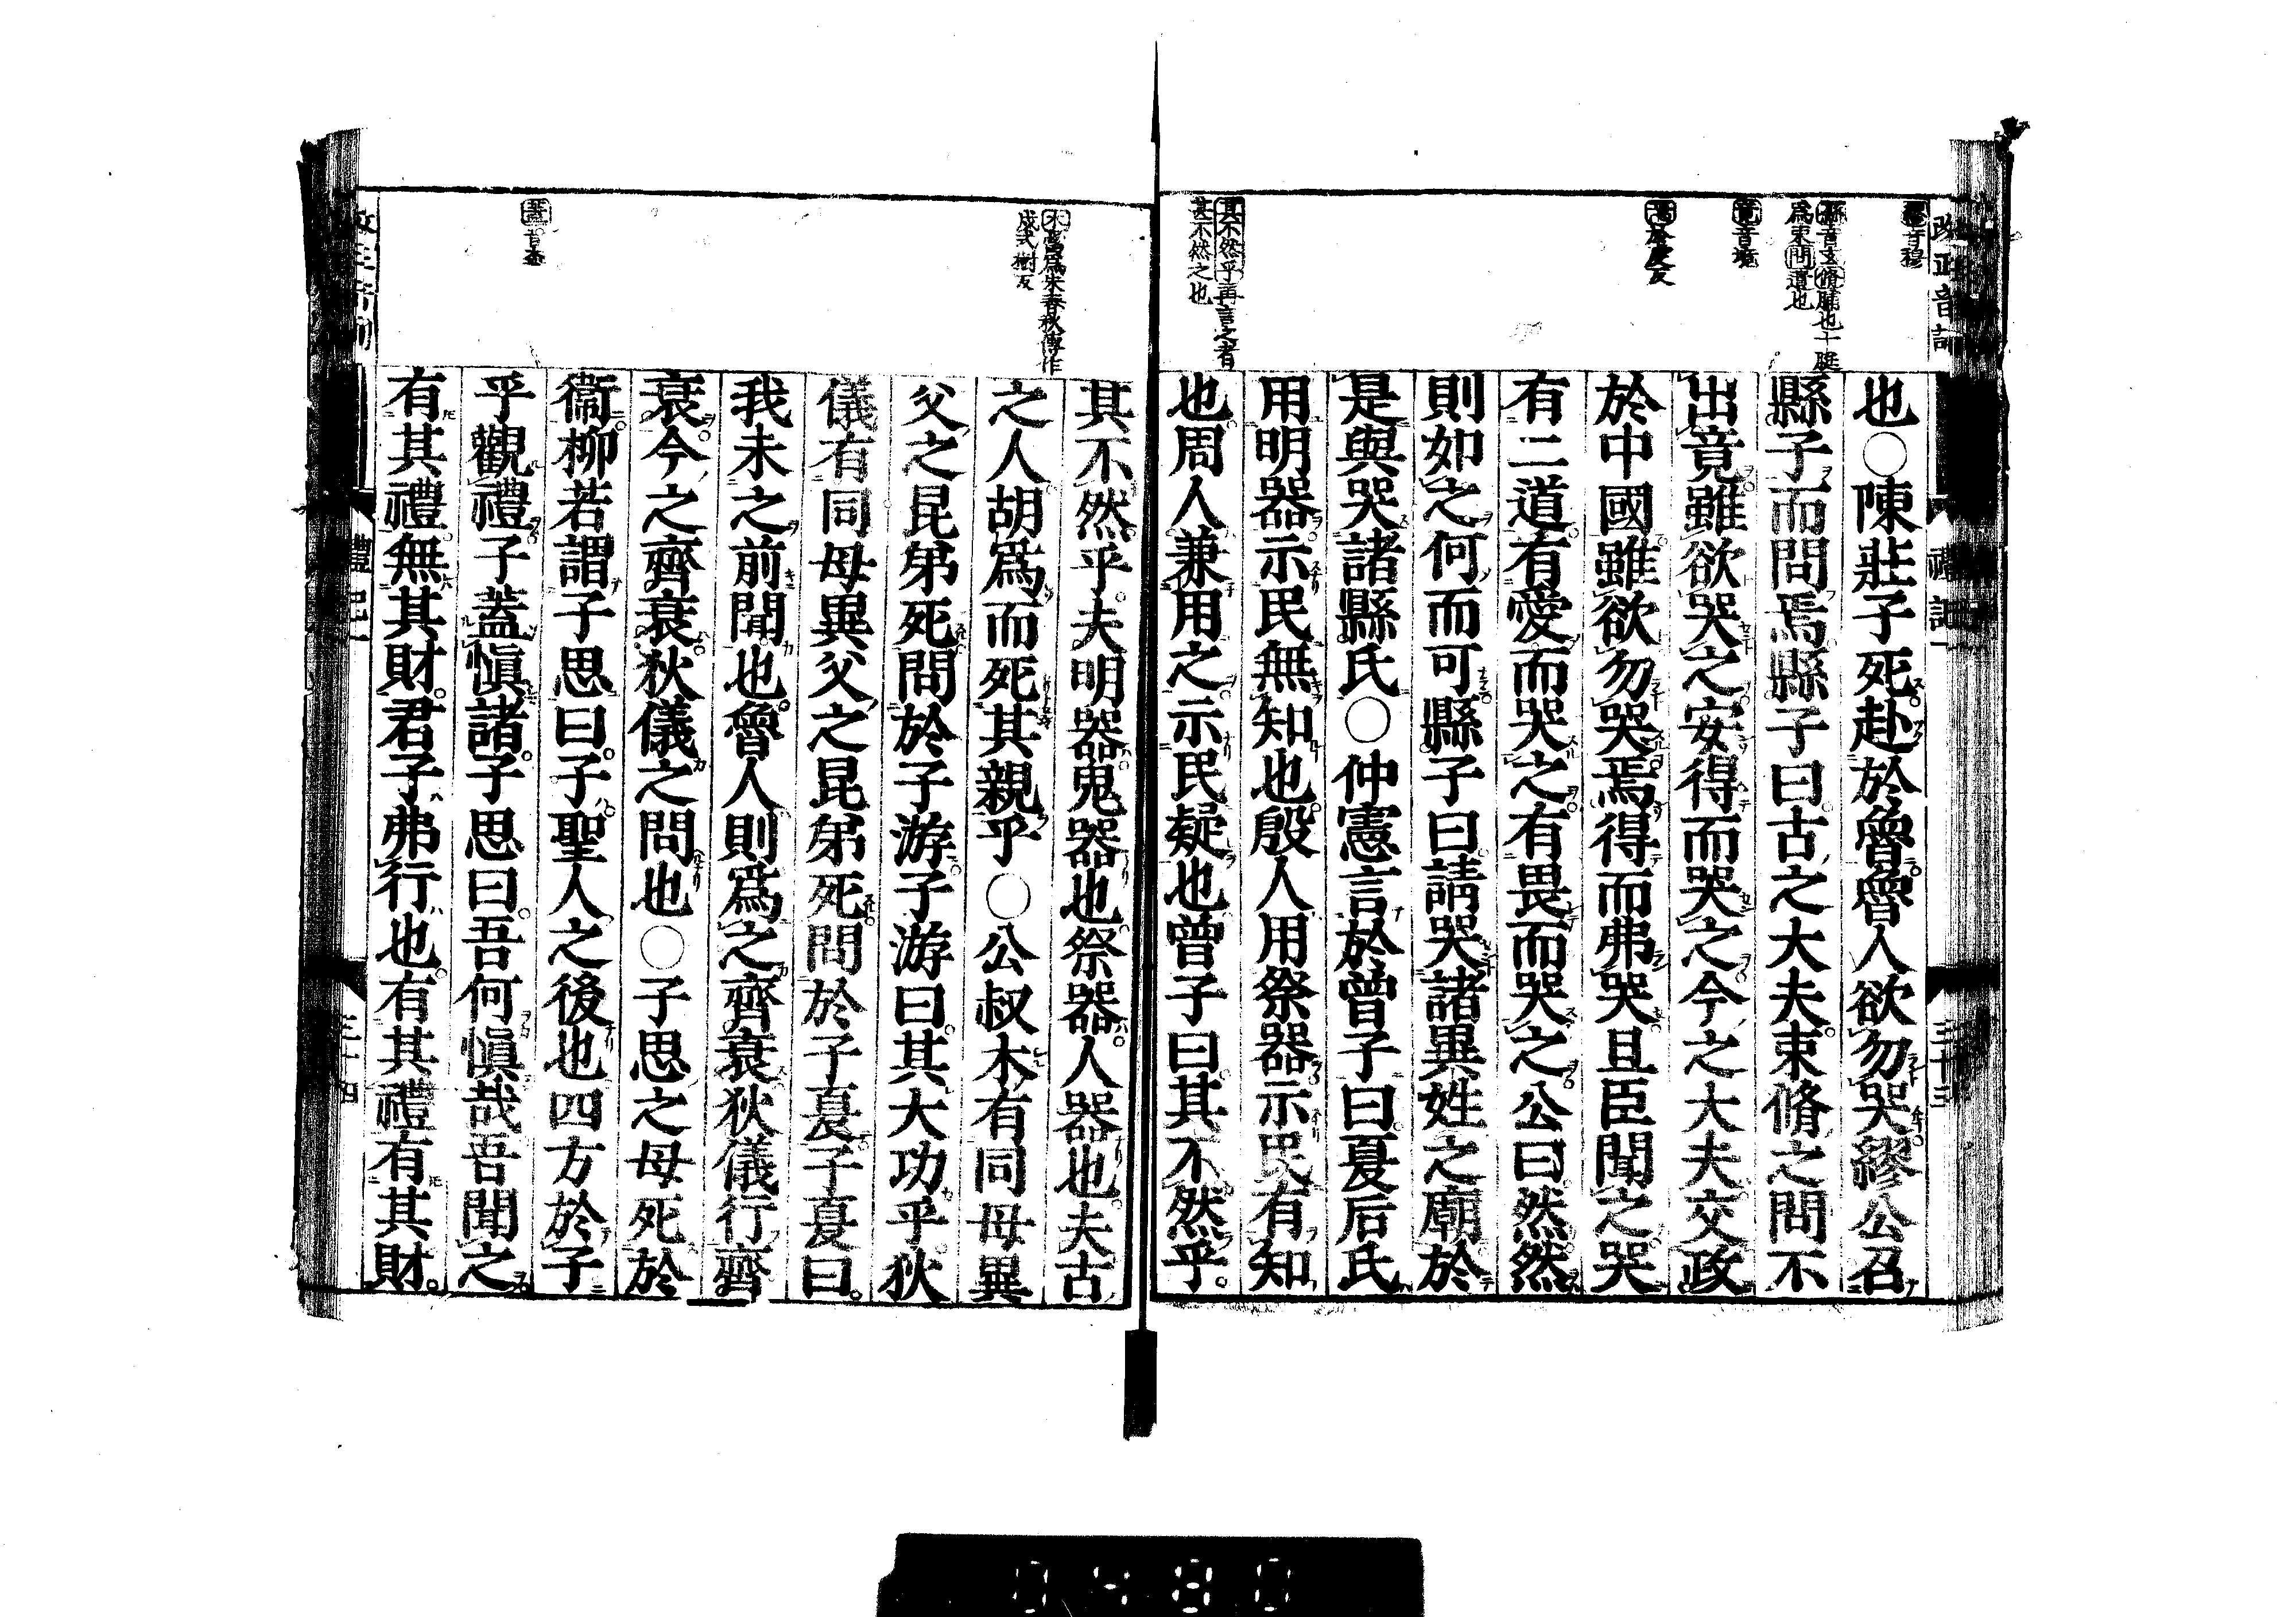 改正音訓
禮記一
三十三
繆音穆
縣音玄脩脯也十脡
爲束問遺也
竟音境
其不然乎再言之者
甚不然之也
也○陳莊子死赴於魯魯人欲勿哭繆公召
縣子而問焉縣子曰古之大夫束脩之問不
出竟雖欲哭之安得而哭之今之大夫交政
於中國雖欲勿哭焉得而弗哭且臣聞之哭
有二道有愛而哭之有畏而哭之公曰然然
則如之何而可縣子曰請哭諸異姓之廟於
是與哭諸縣氏○仲憲言於曾子曰夏后氏
用明器示民無知也殷人用祭器示民有知
也周人兼用之示民疑也曾子曰其不然乎
木當爲朱春秋傳作
戍式樹反
其不然乎夫明器鬼器也祭器人器也夫古
之人胡爲而死其親乎○公叔木有同母異
父之昆弟死問於子游子游曰其大功乎狄
儀有同母異父之昆弟死問於子夏子夏曰
我未之前聞也魯人則爲之齊衰狄儀行齊
衰今之齊衰狄儀之問也○子思之母死於
衞柳若謂子思曰子聖人之後也四方於子
乎觀禮子蓋愼諸子思曰吾何愼哉吾聞之
有其禮無其財君子弗行也有其禮有其財
禮記一
三十四